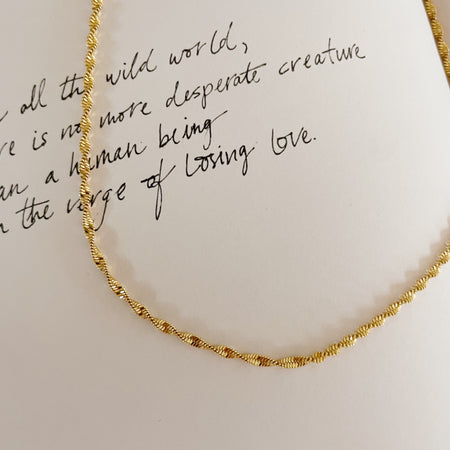 all the wild world,
re is no more desperate creature
an a human being
n the verge of losing love.